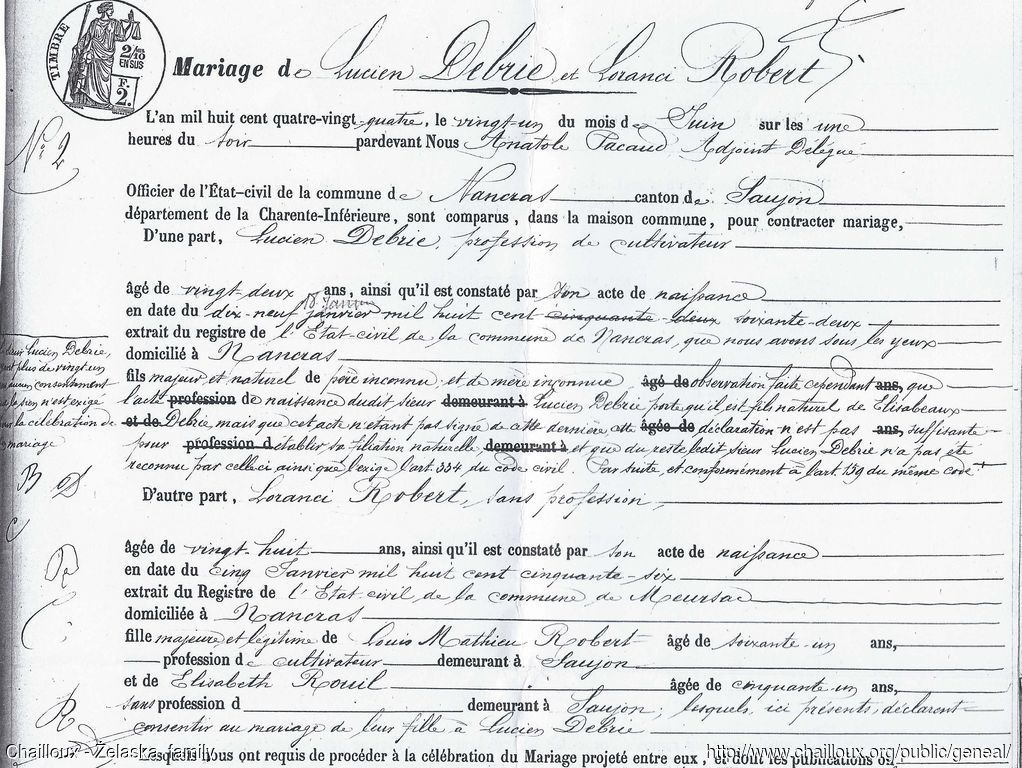 TIMBRE
2/10 EN SUS
F. 2.
Mariage de Lucien Debrie et Loranci Robert
N° 2
L'an mil huit cent quatre-vingt-quatre, le vingt-un du mois de Juin sur les une
heures du soir pardevant Nous Anatole Pacaud Adjoint Délégué
Officier de l'État-civil de la commune de Nancras canton de Saujon
département de la Charente-Inférieure, sont comparus, dans la maison commune, pour contracter mariage,
D'une part, Lucien Debrie, profession de cultivateur
âgé de vingt-deux ans, ainsi qu'il est constaté par son acte de naissance
18 Janvier
en date du dix-neuf janvier mil huit cent cinquante-deux soixante-deux
extrait du registre de l'Etat-civil de la commune de Nancras, que nous avons sous les yeux
domicilié à Nancras
fils majeur et naturel de père inconnu et de mère inconnue âgé de observation faite cependant ans, que
l'acte profession de naissance dudit sieur demeurant à Lucien Debrie porte qu'il est fils naturel de Elisabeaux
et de Debrie, mais que cet acte n'étant pas signé de cette dernière âgée de déclaration n'est pas ans, suffisante
pour profession d établir sa filiation naturelle demeurant à et que du reste ledit sieur Lucien Debrie n'a pas été
reconnu par celle ci ainsi que l'exige l'art. 334 du code civil. Par suite et conformément à l'art. 159 du même code +
sieur Lucien Debrie,
plus de vingt un
aucun consentement
n'est exigé
la célébration de
mariage
B D
D'autre part, Loranci Robert, sans profession,
âgée de vingt-huit ans, ainsi qu'il est constaté par son acte de naissance
en date du cinq Janvier mil huit cent cinquante-six
extrait du Registre de l'Etat-civil de la commune de Meursac
domiciliée à Nancras
fille majeure et légitime de Louis Mathieu Robert âgé de soixante-un ans,
profession de cultivateur demeurant à Saujon
et de Elisabeth Rouil âgée de cinquante-un ans,
sans profession d demeurant à Saujon; lesquels, ici présents, déclarent
consentir au mariage de leur fille à Lucien Debrie
R
Lesquels nous ont requis de procéder à la célébration du Mariage projeté entre eux, et dont les publications ont
Chailloux - Zelaska family
http://www.chailloux.org/public/geneal/